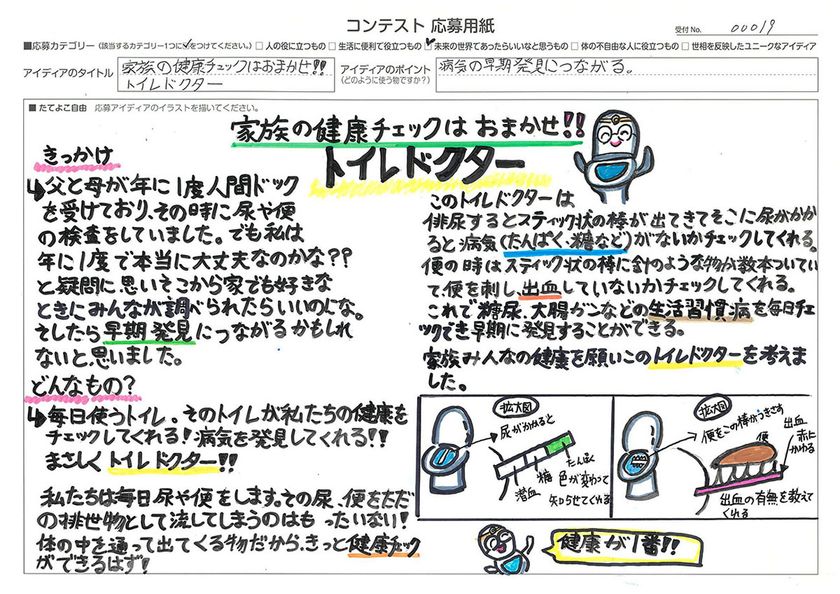 コンテスト 応募用紙
受付No. 00019
■応募カテゴリー (該当するカテゴリー1つに✓をつけてください。) □ 人の役に立つもの □ 生活に便利で役立つもの ☑ 未来の世界であったらいいなと思うもの □ 体の不自由な人に役立つもの □ 世相を反映したユニークなアイディア
アイディアのタイトル
家族の健康チェックはおまかせ!!
トイレドクター
アイディアのポイント
(どのように使う物ですか?)
病気の早期発見につながる。
■ たてよこ自由 応募アイディアのイラストを描いてください。
家族の健康チェックは おまかせ!!
トイレドクター
きっかけ
↳父と母が年に1度人間ドック
を受けており、その時に尿や便
の検査をしていました。でも私は
年に1度で本当に大丈夫なのかな??
と疑問に思いそこから家でも好きな
ときにみんなが調べられたらいいのにな。
そしたら早期発見につながるかもしれ
ないと思いました。
どんなもの?
↳毎日使うトイレ。そのトイレが私たちの健康を
チェックしてくれる!病気を発見してくれる!!
まさしくトイレドクター!!
私たちは毎日尿や便をします。その尿、便をただ
の排世物として流してしまうのはもったいない!
体の中を通って出てくる物だから、きっと健康チェック
ができるはず!
このトイレドクターは
排尿するとスティック状の棒が出てきてそこに尿がかか
ると病気(たんぱく、糖など)がないかチェックしてくれる。
便の時はスティック状の棒に針のような物が数本ついてい
て、便を刺し、出血していないかチェックしてくれる。
これで糖尿、大腸ガンなどの生活習慣病を毎日チェ
ックでき早期に発見することができる。
家族みんなの健康を願いこのトイレドクターを考えま
した。
拡大図
尿がかかると
たんぱく
糖
潜血
色が変わって
知らせてくれる
拡大図
便をこの棒がつきさす
便
出血
赤に
かわる
出血の有無を教えて
くれる
健康が1番!!